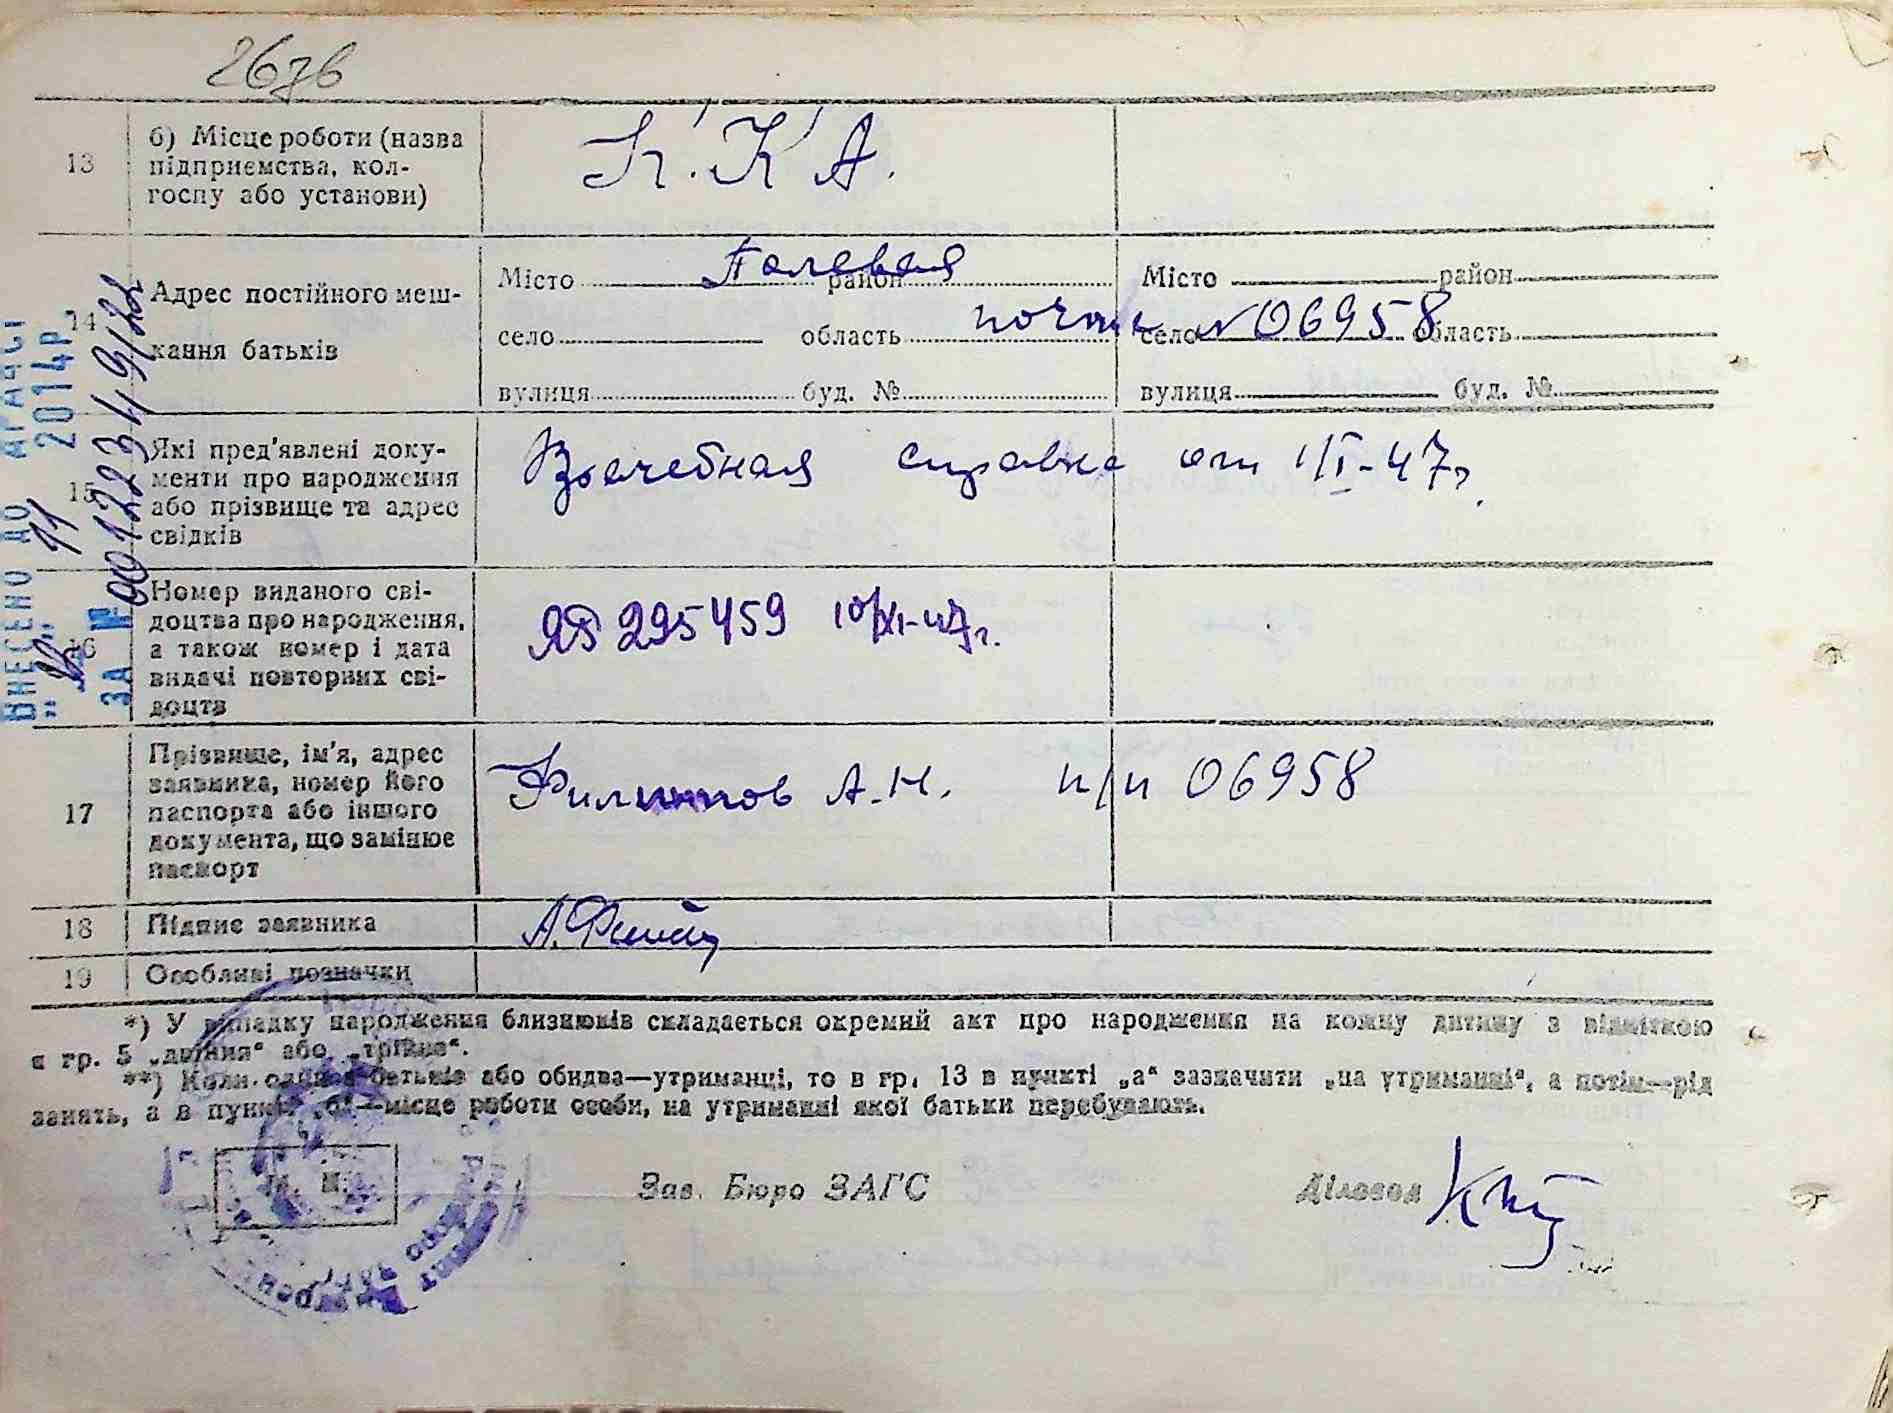 267в
13
б) Місце роботи (назва
підприємства, кол-
госпу або установи)
К.К А.
14
Адрес постійного меш-
кання батьків
Місто район
Полевая
село область
почта №06958
вулиця буд. №
Місто район
село область
вулиця буд. №
15
Які пред'явлені доку-
менти про народження
або прізвище та адрес
свідків
Врачебная справка от 1/I-47г.
16
Номер виданого сві-
доцтва про народження,
а також номер і дата
видачі повторних сві-
доцтв
ЯБ 295459 10/XI-47г.
17
Прізвище, ім'я, адрес
заявника, номер його
паспорта або іншого
документа, що замінює
паспорт
Филиппов А.Н. п/п 06958
18
Підпис заявника
19
Особливі позначки
*) У випадку народження близнюків складається окремий акт про народження на кожну дитину з відміткою
в гр. 5 „двійня“ або „трійня“.
**) Коли один з батьків або обидва—утриманці, то в гр. 13 в пункті „а“ зазначити „на утриманні“, а потім—рід
занять, а в пункті „б“—місце роботи особи, на утриманні якої батьки перебувають.
М. П.
Зав. Бюро ЗАГС
Діловод
ВНЕСЕНО ДО ДРАЦСІ
" 11 2014р.
ЗА № 00122349122